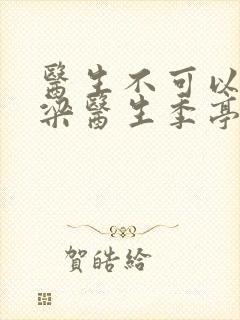 醫生不可以
梁醫生季亭
賀皓給